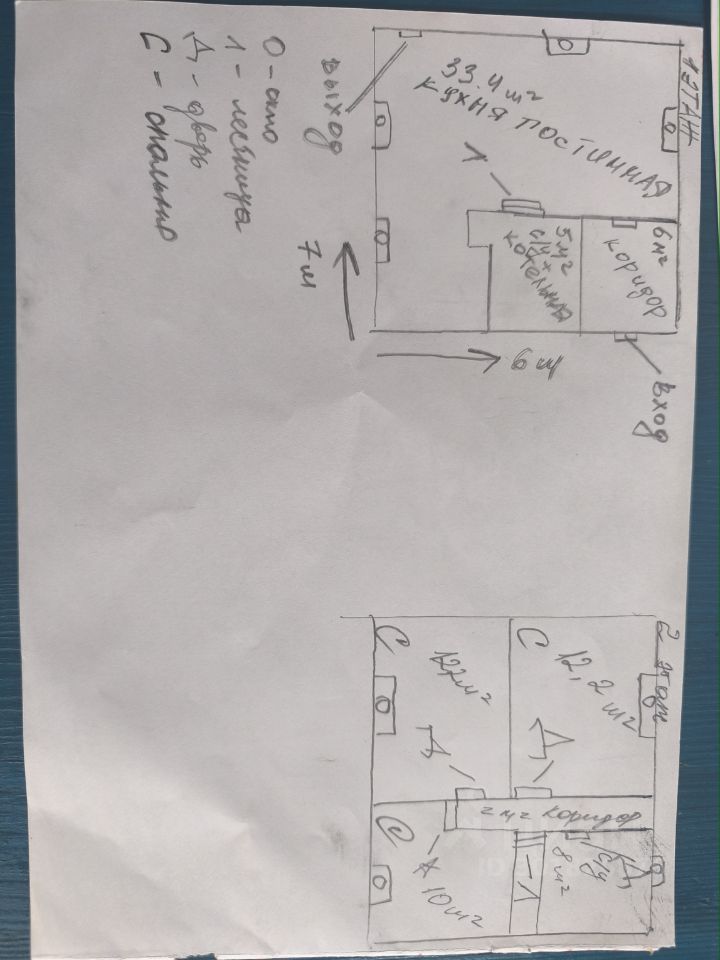 1 ЭТАЖ
33.4 м²
кухня гостинная
О
О
О
О
Л
5 м²
с/у +
котельная
6 м²
коридор
вход
выход
7 м
6 м
О - окно
Л - лестница
Д - дверь
С = спальня
2 этаж
С 12,2 м²
О
С
О
Д
Д
2 м² коридор
О
Д
10 м²
Л
с/у
8 м²
Д
О